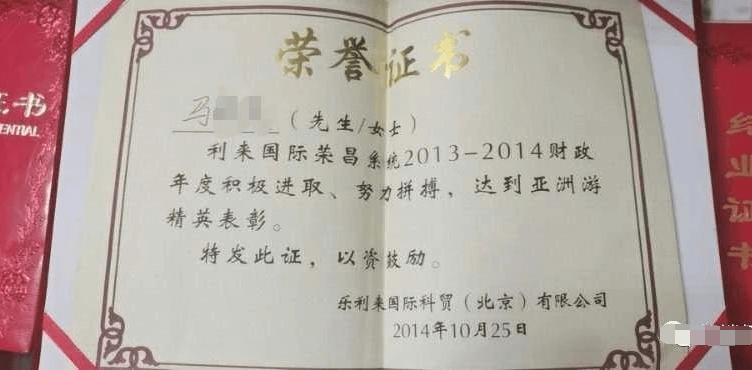 荣誉证书
马
(先生/女士)
利来国际荣昌系统2013-2014财政
年度积极进取、努力拼搏，达到亚洲游
精英表彰。
特发此证，以资鼓励。
乐利来国际科贸（北京）有限公司
2014年10月25日
证书
ENTIAL
业
证
书